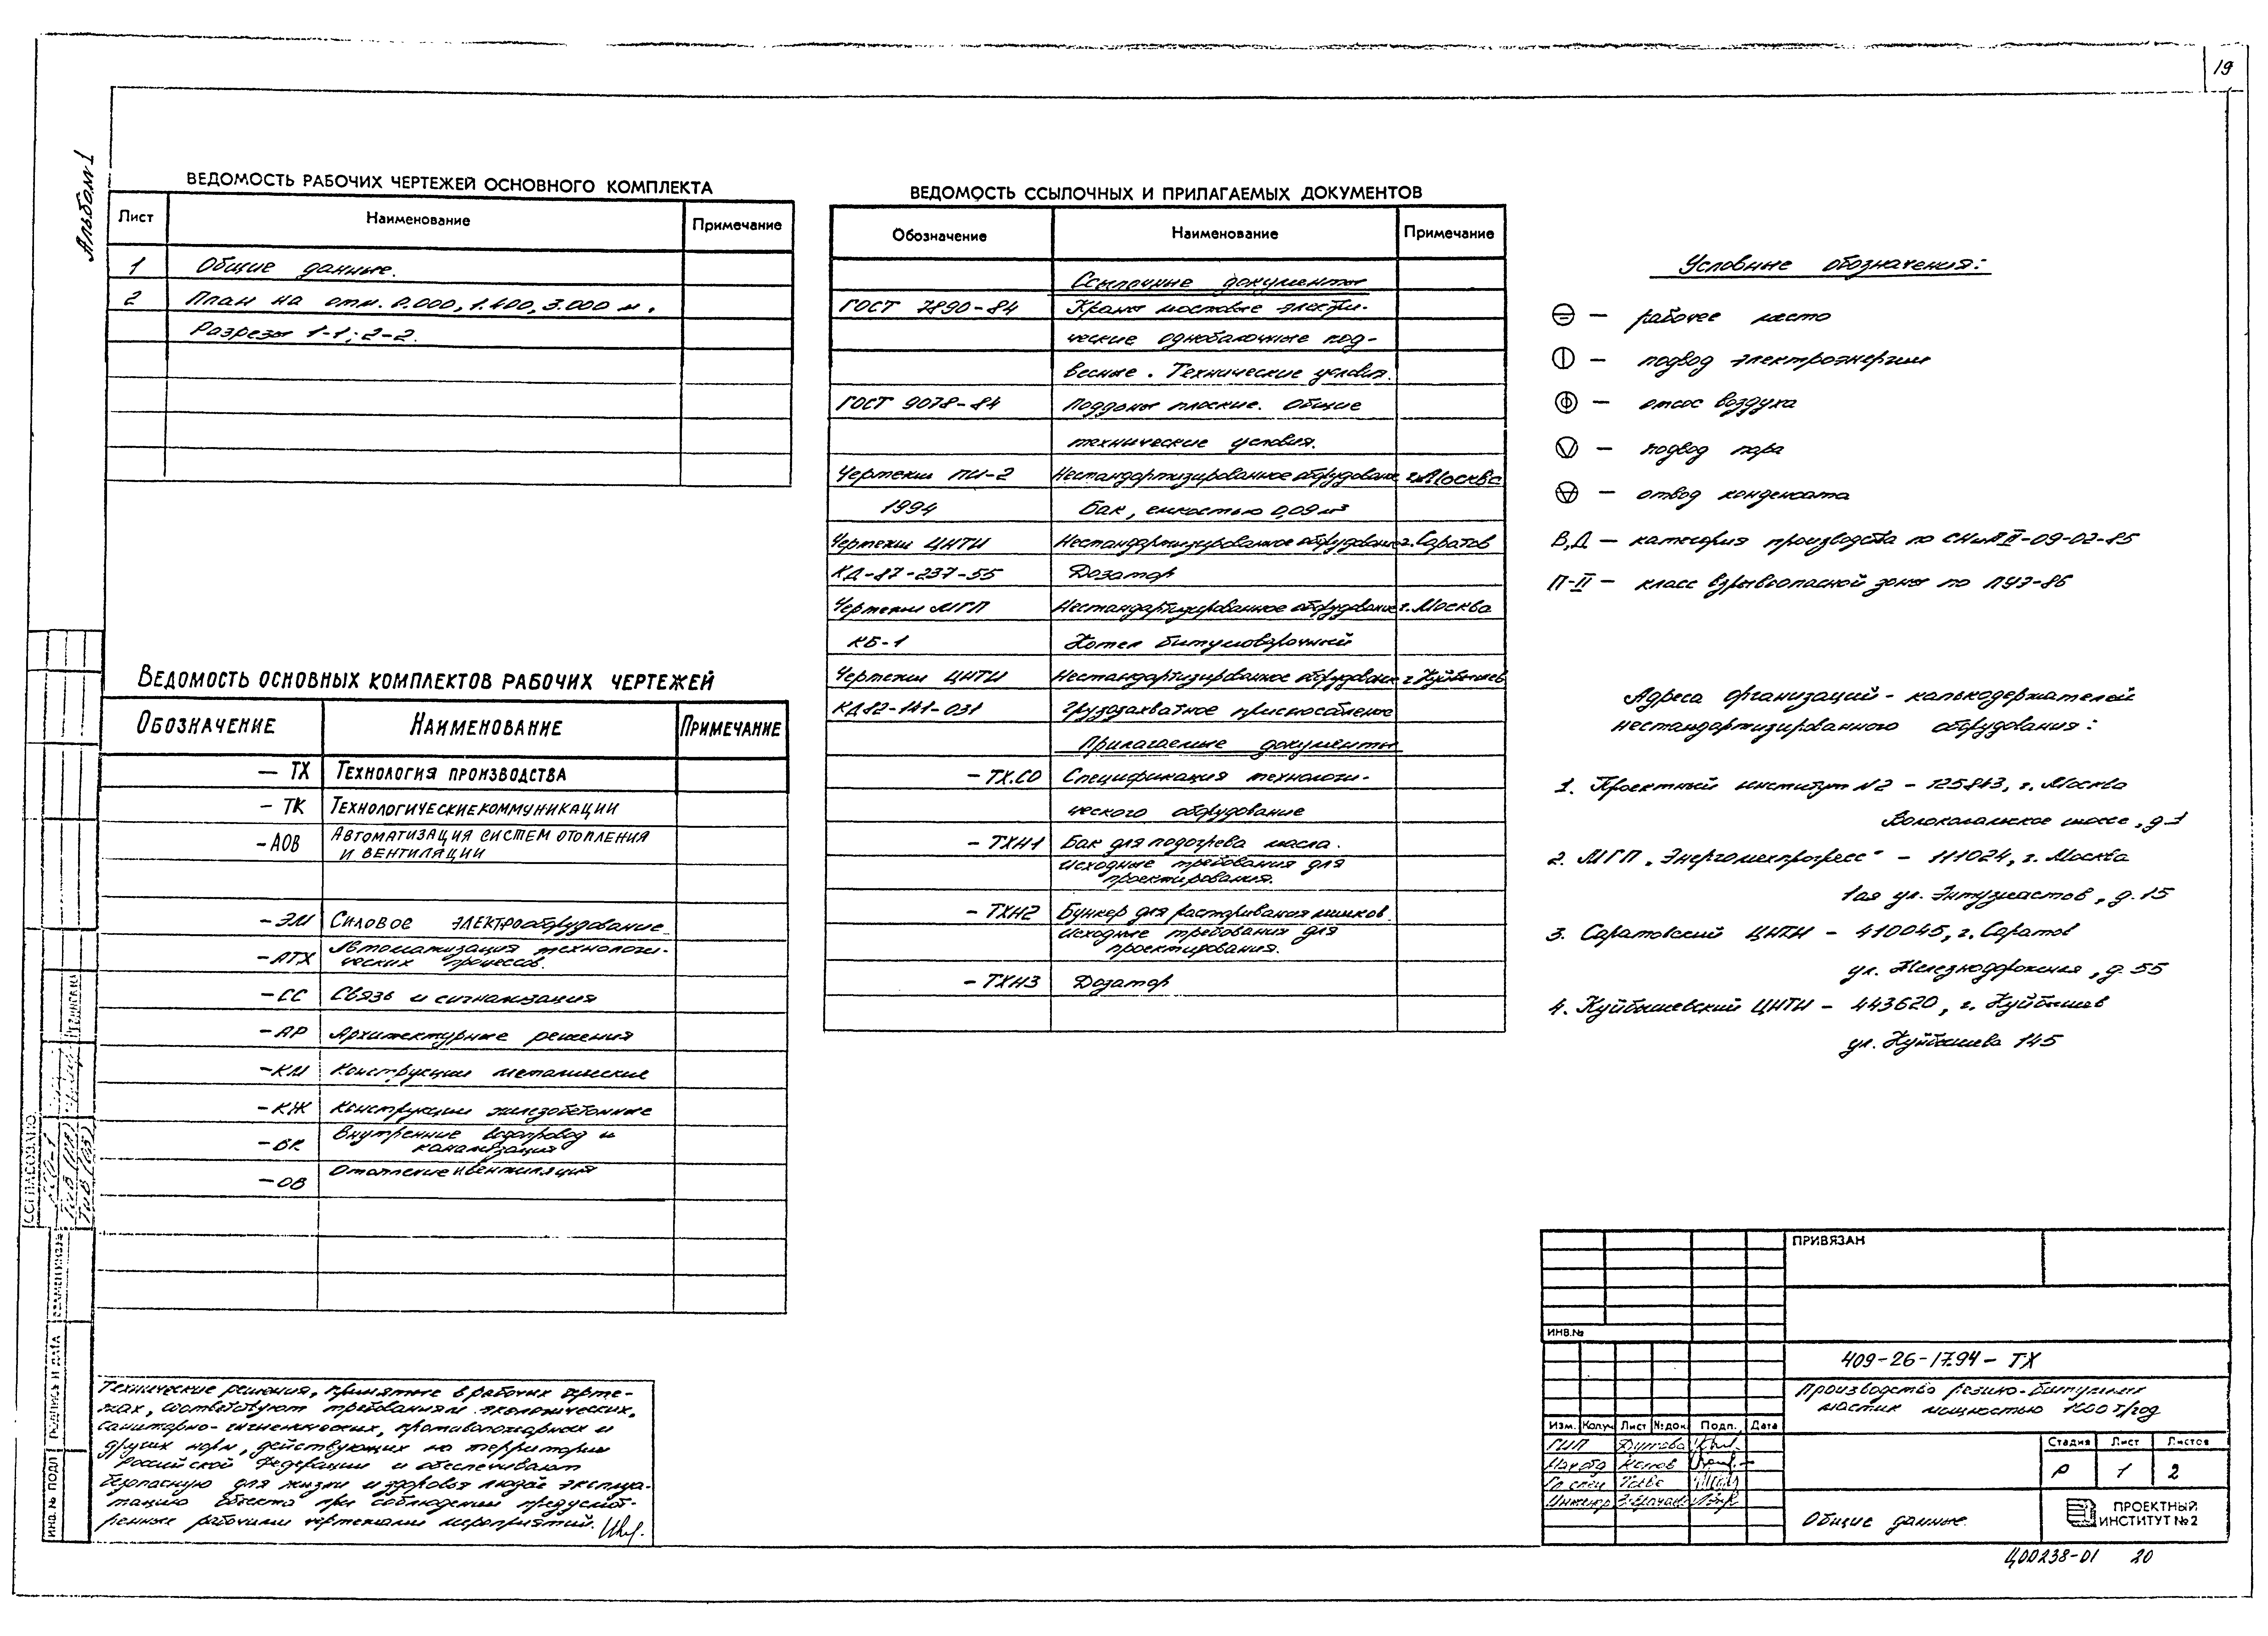 19
Альбом 1
ВЕДОМОСТЬ РАБОЧИХ ЧЕРТЕЖЕЙ ОСНОВНОГО КОМПЛЕКТА
Лист Наименование Примечание
1 Общие данные.
2 План на отм. 0.000, 1.400, 3.000 м.
Разрезы 1-1; 2-2.
ВЕДОМОСТЬ ОСНОВНЫХ КОМПЛЕКТОВ РАБОЧИХ ЧЕРТЕЖЕЙ
ОБОЗНАЧЕНИЕ НАИМЕНОВАНИЕ ПРИМЕЧАНИЕ
— ТХ ТЕХНОЛОГИЯ ПРОИЗВОДСТВА
- ТК ТЕХНОЛОГИЧЕСКИЕ КОММУНИКАЦИИ
- АОВ АВТОМАТИЗАЦИЯ СИСТЕМ ОТОПЛЕНИЯ
И ВЕНТИЛЯЦИИ
- ЭМ Силовое электрооборудование
- АТХ Автоматизация технологи-
ческих процессов.
- СС Связь и сигнализация
- АР Архитектурные решения
- КМ Конструкции металические
- КЖ Конструкции железобетонные
- ВК Внутренние водопровод и
канализация
- ОВ Отопление и вентиляция
Технические решения, принятые в рабочих черте-
жах, соответствуют требованиям экологических,
санитарно-гигиенических, противопожарных и
других норм, действующих на территории
Российской Федерации и обеспечивают
безопасную для жизни и здоровья людей эксплуа-
тацию объекта при соблюдении предусмот-
ренных рабочими чертежами мероприятий.
ВЕДОМОСТЬ ССЫЛОЧНЫХ И ПРИЛАГАЕМЫХ ДОКУМЕНТОВ
Обозначение Наименование Примечание
Ссылочные документы
ГОСТ 7890-84 Краны мостовые электри-
ческие однобалочные под-
весные. Технические условия.
ГОСТ 9078-84 Поддоны плоские. Общие
технические условия.
Чертежи ПИ-2 Нестандартизированное оборудование г. Москва
1994 Бак, емкостью 0,09 м³
Чертежи ЦНТИ Нестандартизированное оборудование г. Саратов
КД-87-237-55 Дозатор
Чертежи МГП Нестандартизированное оборудование г. Москва
КБ-1 Котел битумоварочный
Чертежи ЦНТИ Нестандартизированное оборудование г. Куйбышев
КД82-141-031 Грузозахватное приспособление
Прилагаемые документы
- ТХ.СО Спецификация технологи-
ческого оборудование
- ТХН1 Бак для подогрева масла.
Исходные требования для
проектирования.
- ТХН2 Бункер для растаривания мешков.
Исходные требования для
проектирования.
- ТХН3 Дозатор
Условные обозначения:
— рабочее место
— подвод электроэнергии
— отсос воздуха
— подвод пара
— отвод конденсата
В,Д — категория производства по СНиП II-09-02-85
П-II — класс взрывоопасной зоны по ПУЭ-86
Адреса организаций - калькодержателей
нестандартизированного оборудования:
1. Проектный институт №2 - 125843, г. Москва
Волокаламское шоссе, д.1
2. МГП "Энергомехпрогресс" - 111024, г. Москва
1ая ул. Энтузиастов, д.15
3. Саратовский ЦНТИ - 410045, г. Саратов
ул. Железнодорожная, д.55
4. Куйбышевский ЦНТИ - 443620, г. Куйбышев
ул. Куйбышева 145
СОГЛАСОВАНО
ВЗАМЕН ИНВ.№
ПОДПИСЬ И ДАТА
ИНВ. № ПОДЛ
ПРИВЯЗАН
ИНВ.№
409-26-17.94 - ТХ
Производство резино-битумных
мастик мощностью 1000 т/год
Изм. Колуч Лист №док Подп. Дата
ГИП
Нач отд
Гл спец
Инженер
Стадия Лист Листов
Р 1 2
Общие данные.
ПРОЕКТНЫЙ
ИНСТИТУТ №2
Ц00238-01 20